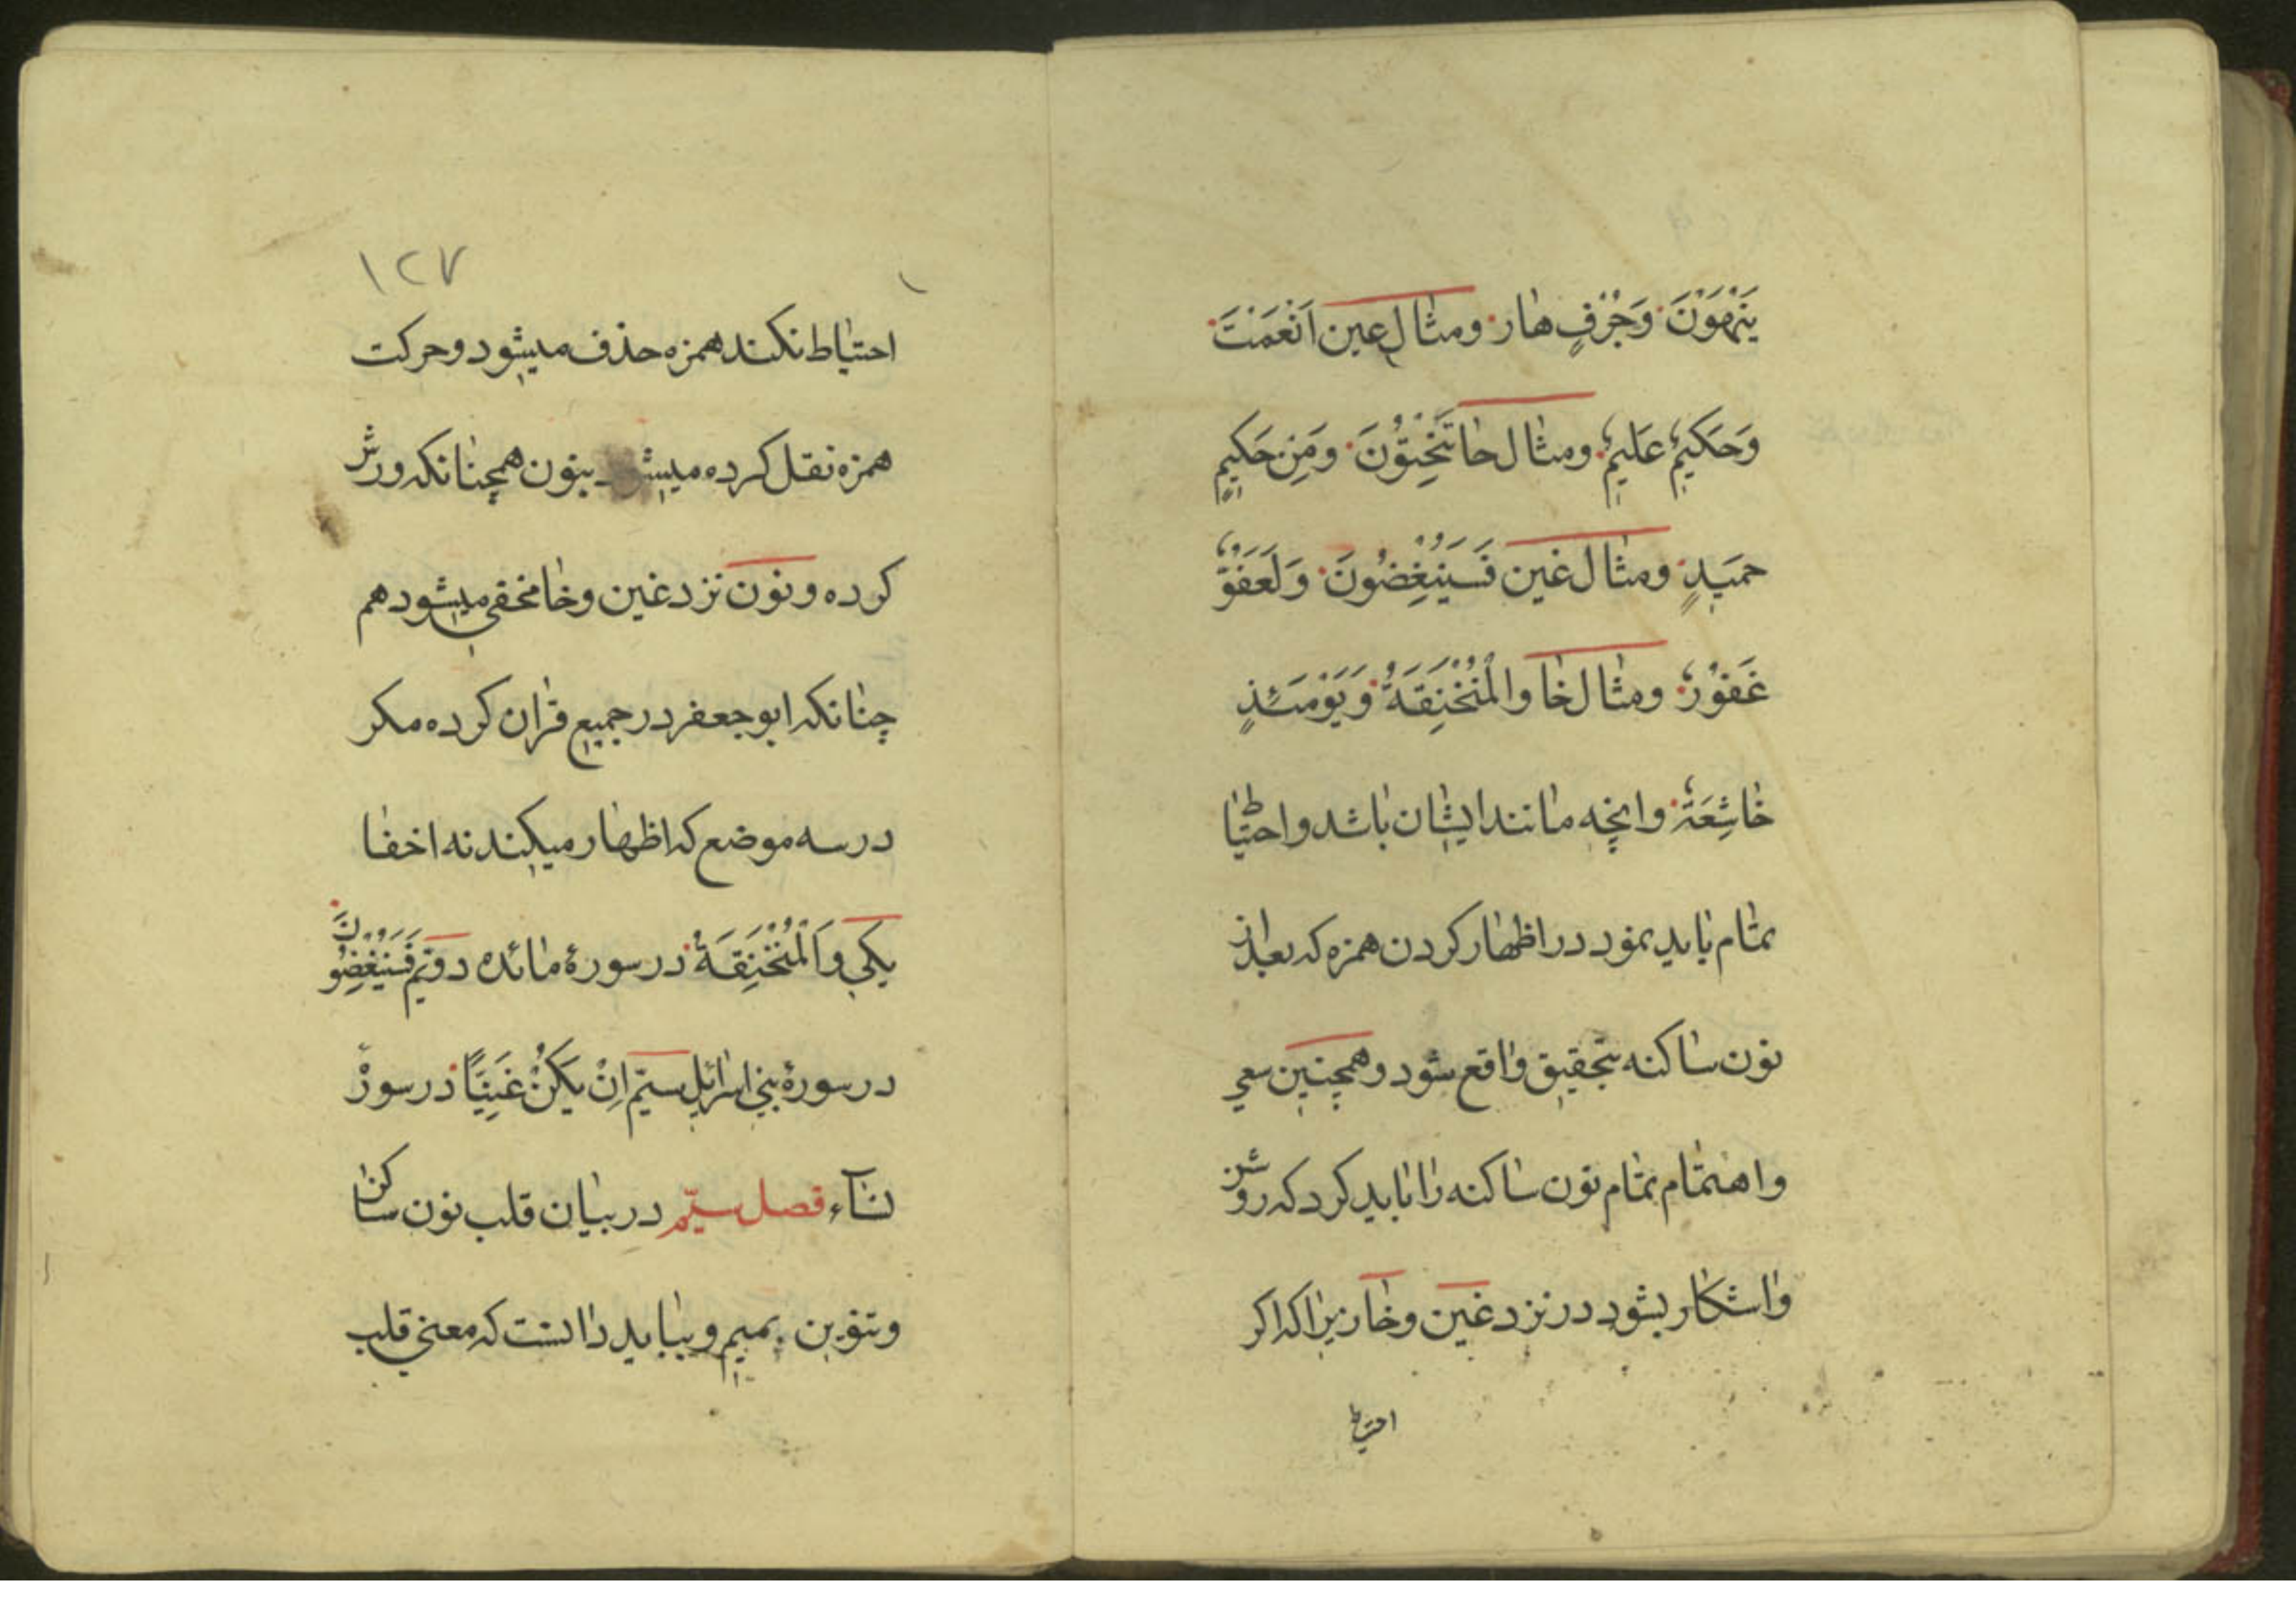 يَنْهَوْنَ وَجُرُفٍ هار ومثال عين اَنْعَمْتَ
وَحَكيمٌ عَليمٌ ومثال حا تَنْحِتُوْنَ وَمِنْ حَكيمٍ
حميَدٍ ومثال غين فَسَيُنْغِضُونَ وَلَعَفُوٌّ
غَفوُرٌ ومثال خا والْمُنْخَنِقَةُ وَيَوْمَئِذٍ
خاشِعَةٌ وانچه مانند ايشان باشد واحتياط
تمام بايد نمود در اظهار كردن همزه كه بعد از
نون ساكنه بتحقيق واقع شود وهمچنين سعي
واهتمام تمام نون ساكنه را بايد كرد كه روشن
واشكار بشود در نزد غين وخا زيرا كه اكر
احتياط
١٢٧
احتياط نكنند همزه حذف ميشود وحركت
همزه نقل كرده ميشود بنون همچنانكه ورش
كرده ونون نزد غين وخا مخفي ميشود هم
چنانكه ابو جعفر در جميع قران كرده مكر
در سه موضع كه اظهار ميكند نه اخفا
يكي وَالْمُنْخَنِقَةُ در سورۀ مائده دوّيم فَسَيُنْغِضُونَ
در سورۀ بني اسرائيل سيّم اِنْ يَكُنْ غَنِيًّا در سورۀ
نساۤء فصل سيّم در بيان قلب نون ساكن
وتنوين بميم وببايد دانست كه معني قلب